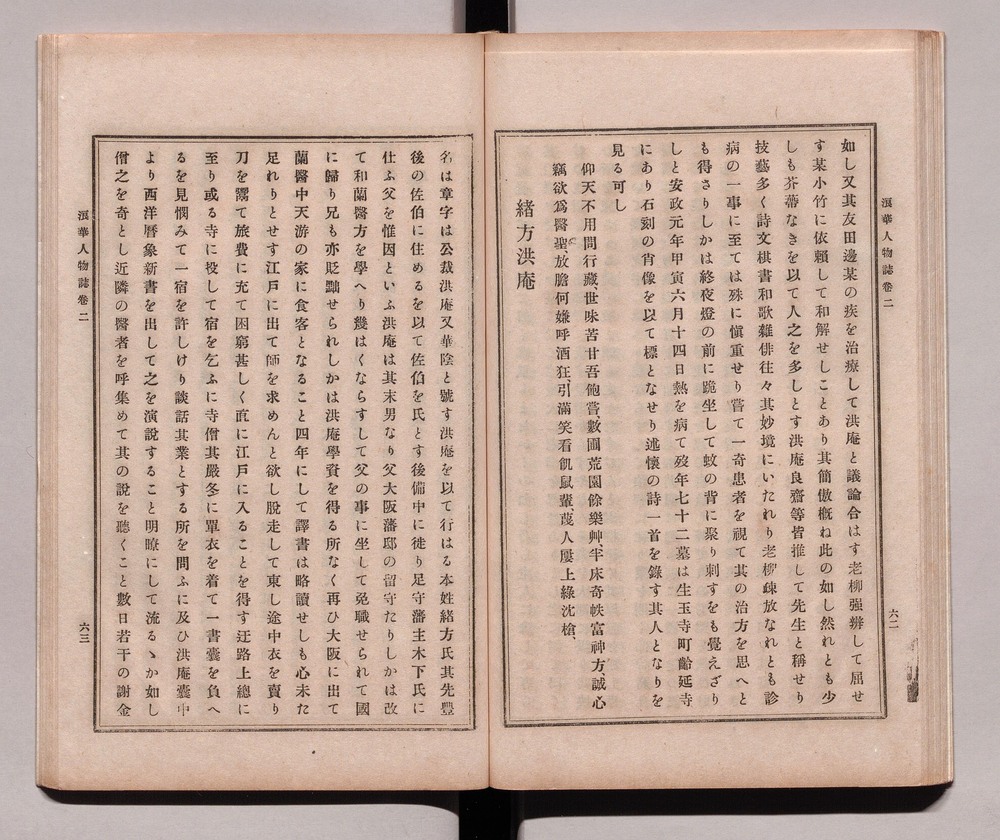 浪華人物誌卷二
六二
如し又其友田邊某の疾を治療して洪庵と議論合はす老柳强辨して屈せ
す某小竹に依賴して和解せしことあり其簡傲槪ね此の如し然れとも少
しも芥蔕なきを以て人之を多しとす洪庵良齋等皆推して先生と稱せり
技藝多く詩文棋書和歌雜俳往々其妙境にいたれり老柳疎放なれとも診
病の一事に至ては殊に愼重せり嘗て一奇患者を視て其の治方を思へと
も得さりしかは終夜燈の前に跪坐して蚊の背に聚り刺すをも覺えざり
しと安政元年甲寅六月十四日熱を病て歿年七十二墓は生玉寺町齡延寺
にあり石刻の肖像を以て標となせり述懷の詩一首を錄す其人となりを
見る可し
仰天不用問行藏、世味苦甘吾飽嘗、數圃荒園餘樂艸、半床奇帙富神方、誠心
竊欲爲醫聖、放膽何嫌呼酒狂、引滿笑看飢鼠輩、蔑人屢上綠沈槍、
緒方洪庵
名は章字は公裁洪庵又華陰と號す洪庵を以て行はる本姓緒方氏其先豐
後の佐伯に住めるを以て佐伯を氏とす後備中に徙り足守藩主木下氏に
仕ふ父を惟因といふ洪庵は其末男なり父大阪藩邸の留守たりしかは改
て和蘭醫方を學へり幾はくならすして父の事に坐して免職せられて國
に歸り兄も亦貶黜せられしかは洪庵學資を得る所なく再ひ大阪に出て
蘭醫中天游の家に食客となること四年にして譯書は略讀せしも心未た
足れりとせす江戸に出て師を求めんと欲し脫走して東し途中衣を賣り
刀を鬻て旅費に充て困窮甚しく直に江戸に入ることを得す迂路上總に
至り或る寺に投して宿を乞ふに寺僧其嚴冬に單衣を着て一書囊を負へ
るを見憫みて一宿を許しけり談話其業とする所を問ふに及ひ洪庵囊中
より西洋曆象新書を出して之を演說すること明瞭にして流るゝか如し
僧之を奇とし近隣の醫者を呼集めて其の說を聽くこと數日若干の謝金
浪華人物誌卷二
六三